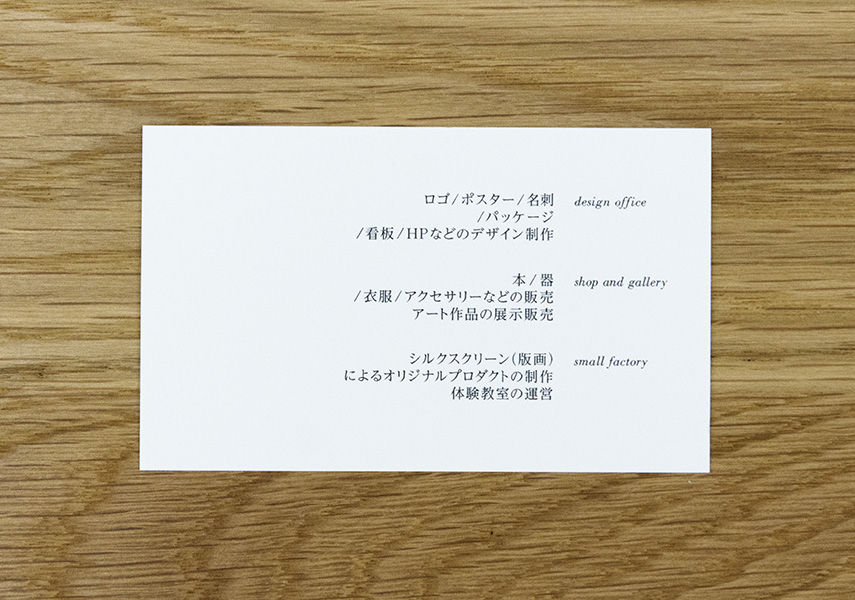 ロゴ/ポスター/名刺 design office
/パッケージ
/看板/HPなどのデザイン制作
本/器 shop and gallery
/衣服/アクセサリーなどの販売
アート作品の展示販売
シルクスクリーン(版画) small factory
によるオリジナルプロダクトの制作
体験教室の運営